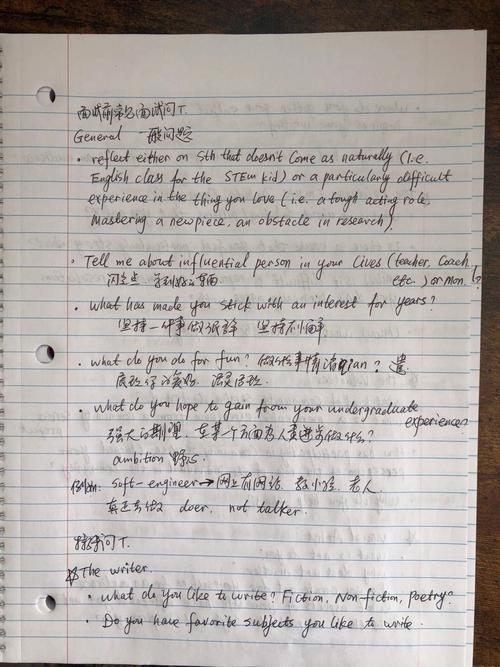 面试前常见面试问T.
General 一般问题
• reflect either on sth that doesn't come as naturally (I.e.
English class for the STEM kid) or a particularly difficult
experience in the thing you love (i.e. a tough acting role,
Mastering a new piece, an obstacle in research).
• Tell me about influential person in your lives (teacher, Coach,
etc.) or mom.?
闪光点
• what has made you stick with an interest for years?
坚持一件事做很多年 坚持不简单
• what do you do for fun? 做些事情消qian? 遣
• what do you hope to gain from your undergraduate
experience
强大的期望, 在某个方面为人类进步做什么?
ambition 野心
soft-engineer→网上有网站, 教小孩, 老人
真正去做 doer, not talker.
特殊问T.
The writer.
• what do you like to write? Fiction, Non-fiction, poetry?
• Do you have favorite subjects you like to write.